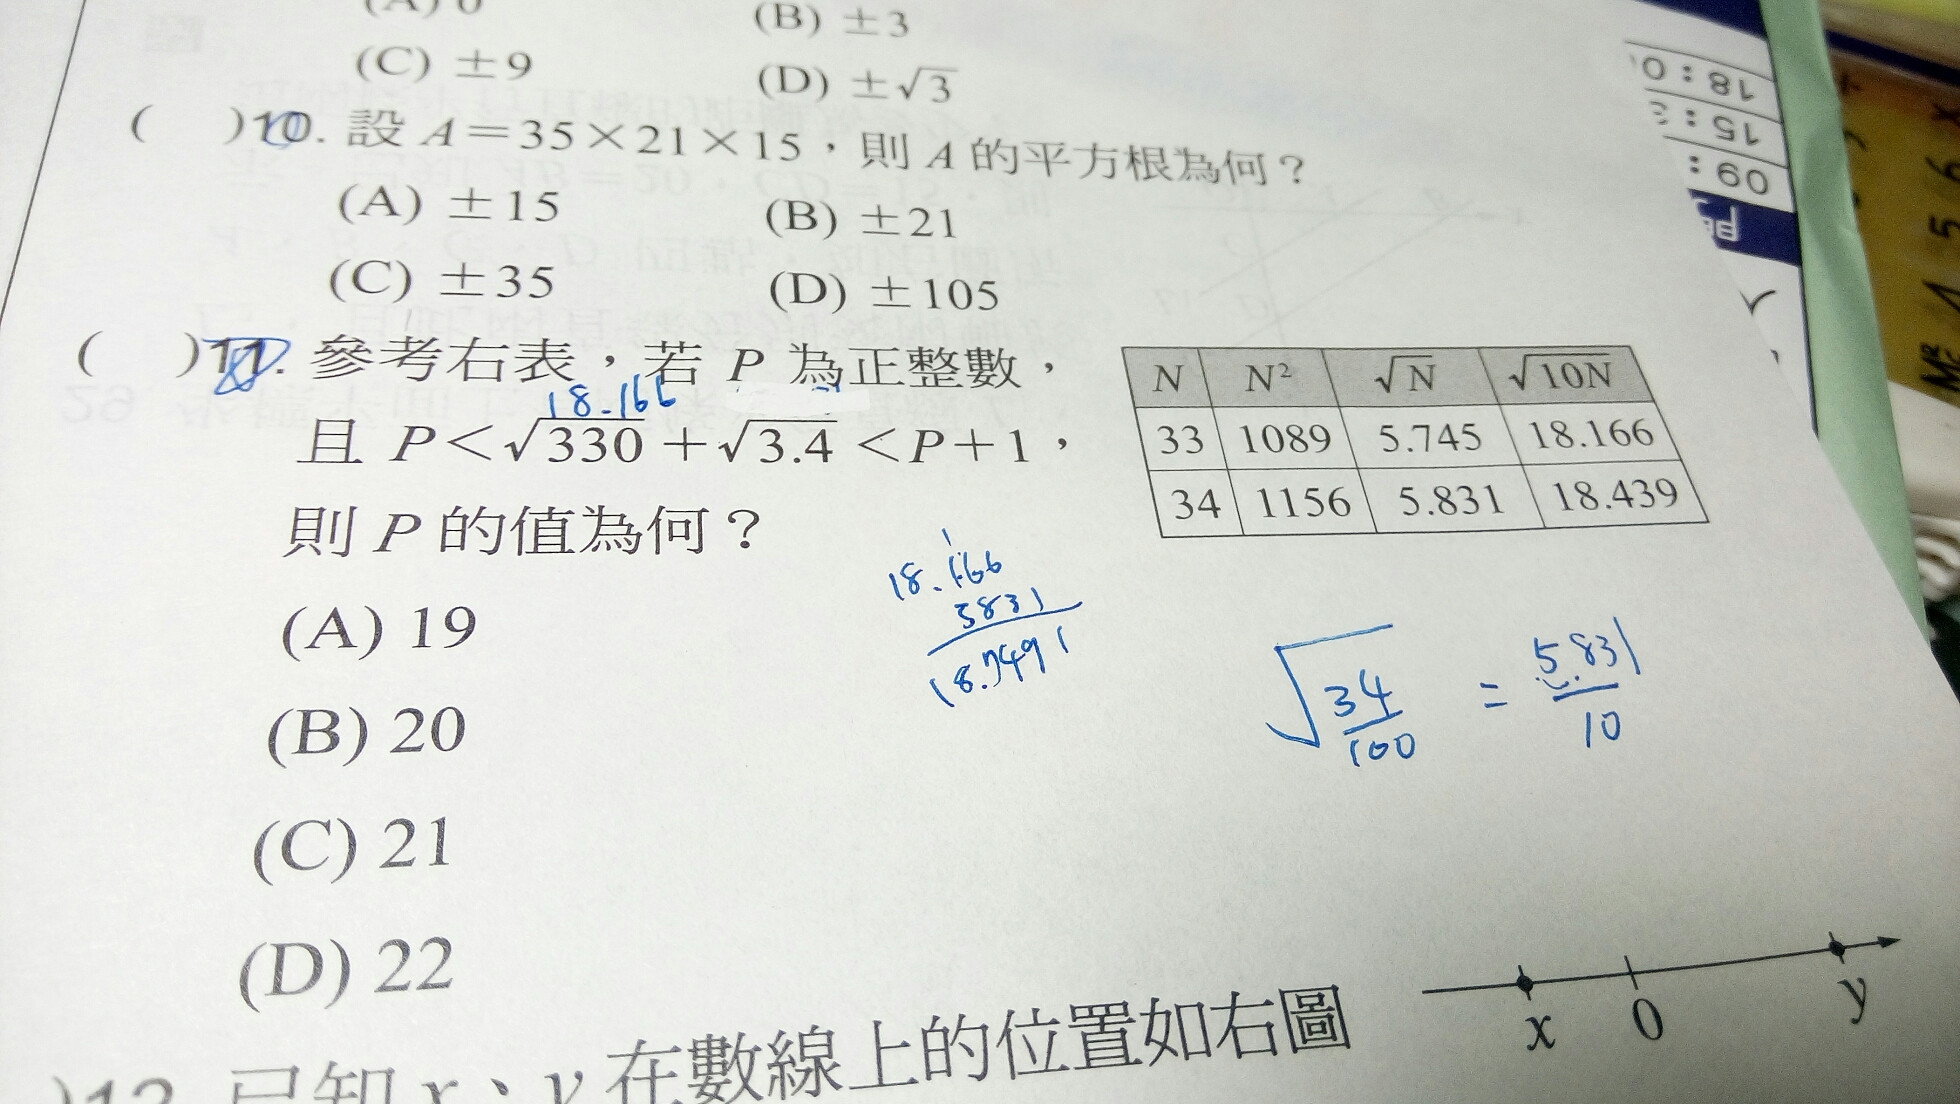 (B) ±3
(C) ±9
(D) ±√3
( )10. 設 A=35×21×15，則 A 的平方根為何？
(A) ±15
(B) ±21
(C) ±35
(D) ±105
( )11. 參考右表，若 P 為正整數，
18.166
且 P<√330+√3.4<P+1，
則 P 的值為何？
(A) 19
(B) 20
(C) 21
(D) 22
N N² √N √10N
33 1089 5.745 18.166
34 1156 5.831 18.439
1
18.166
5831
18.7491
√34/100 = 5.831/10
)12. 已知 x、y 在數線上的位置如右圖
x 0 y
18:0
15:3
09: